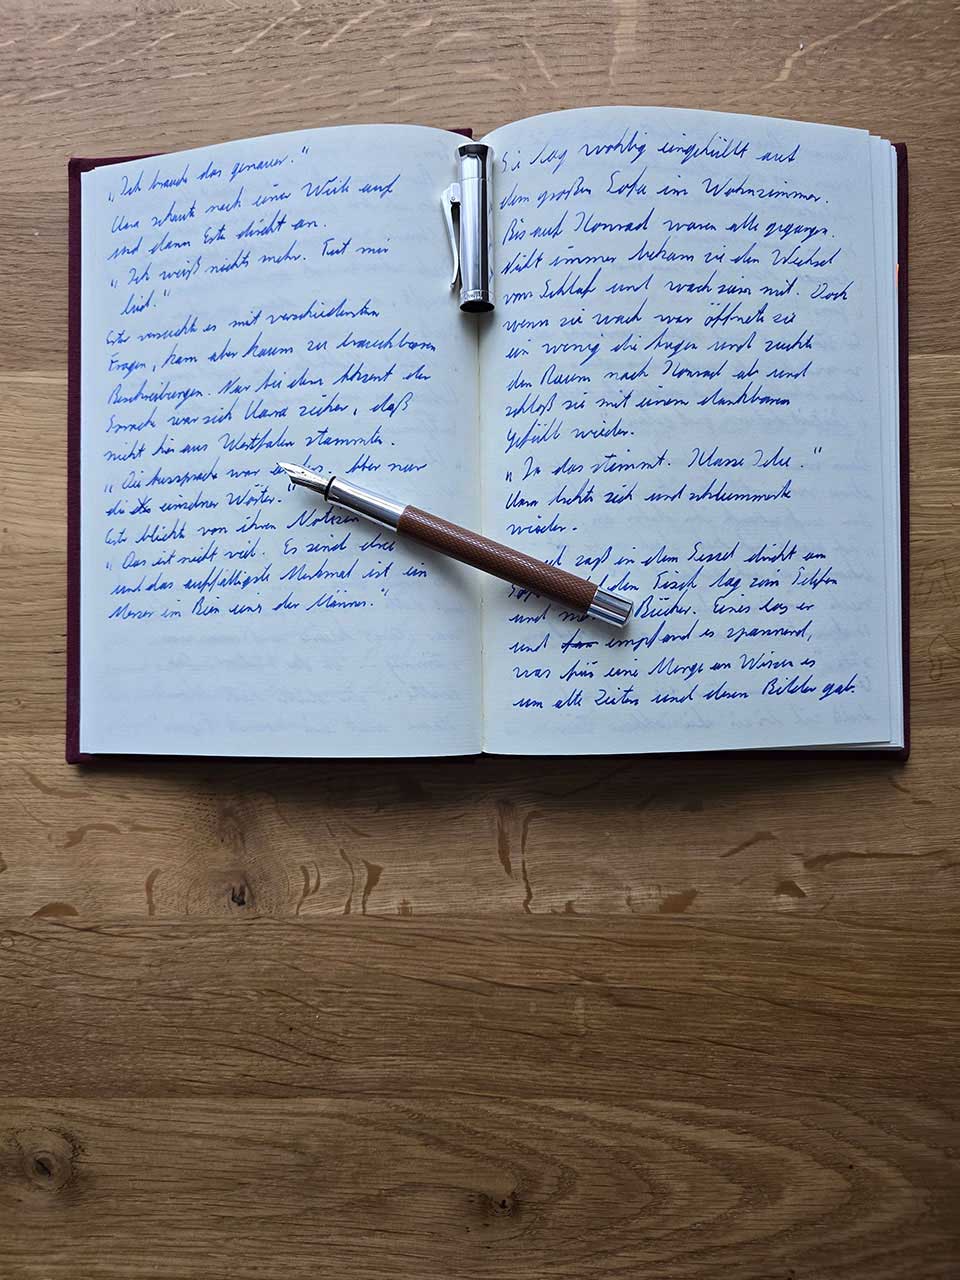 „Ich brauch das genauer."
Uara schaute nach einer Weile auf
und dann Este direkt an.
„Ich weiß nichts mehr. Tut mir
leid."
Este versuchte es mit verschiedensten
Fragen, kam aber kaum zu brauchbaren
Beschreibungen. Nur bei dem Akzent der
Sprache war sich Uara sicher, daß
nicht hier aus Westfalen stammten.
„Die Aussprache war Aber nur
die einzelner Wörter."
Este blickte von ihren Notizen
„Das ist nicht viel. Es sind drei
und das auffälligste Merkmal ist ein
Messer im Bein eines der Männer."
Sie lag wohlig eingehüllt auf
dem großen Sofa im Wohnzimmer.
Bis auf Konrad waren alle gegangen.
Nicht immer bekam sie den Wechsel
von Schlaf und wach sein mit. Doch
wenn sie wach war öffnete sie
ein wenig die Augen und suchte
den Raum nach Konrad ab und
schloß sie mit einem dankbaren
Gefühl wieder.
„Ja das stimmt. Klasse Idee."
Uara lachte sich und schlummerte
wieder.
saß in dem Sessel direkt am
den Tisch lag sein Telefon
und Bücher. Eines las er
und empfand es spannend,
was für eine Menge an Wissen es
um alte Zeiten und deren Bilder gab.